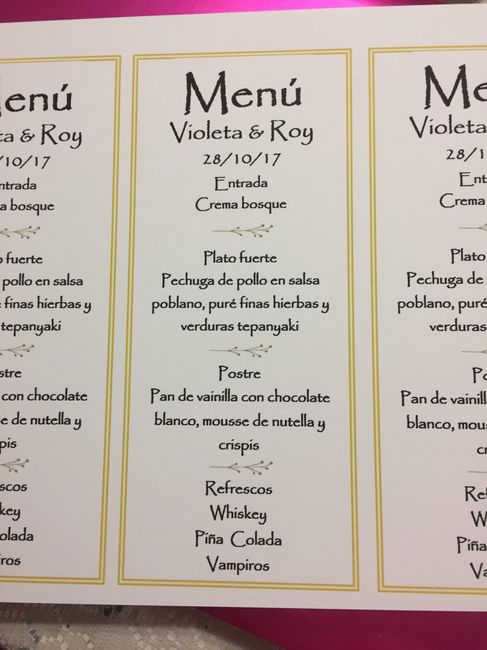 Menú
Violeta & Roy
28/10/17
Entrada
Crema bosque
Plato fuerte
Pechuga de pollo en salsa
poblano, puré finas hierbas y
verduras tepanyaki
Postre
Pan de vainilla con chocolate
blanco, mousse de nutella y
crispis
Refrescos
Whiskey
Piña Colada
Vampiros
enú
ta & Roy
/10/17
ntrada
a bosque
o fuerte
pollo en salsa
finas hierbas y
tepanyaki
stre
con chocolate
se de nutella y
pis
scos
key
olada
iros
Me
Violeta
28/1
Ent
Crema
Plato
Pechuga de
poblano, puré
verduras
Po
Pan de vainill
blanco, mous
cr
Ref
W
Piña
Va